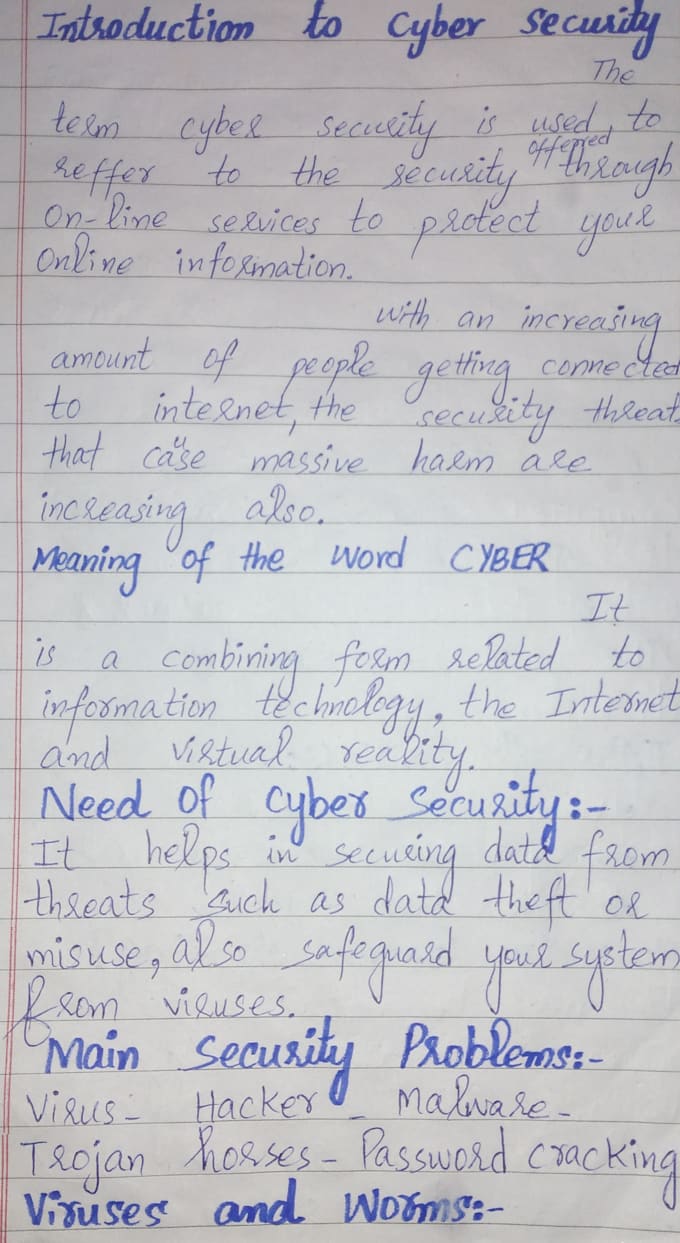 Introduction to Cyber Security
The
term cyber security is used to
reffer to the security offered through
on-line services to protect your
online information.
with an increasing
amount of people getting connected
to internet, the security threat
that case massive harm are
increasing also.
Meaning of the word CYBER
It
is a combining form related to
information technology, the Internet
and virtual reality.
Need Of Cyber Security:-
It helps in securing data from
threats such as data theft or
misuse, also safeguard your system
from viruses.
Main Security Problems:-
Virus - Hacker - Malware -
Trojan horses - Password cracking
Viruses and Worms:-